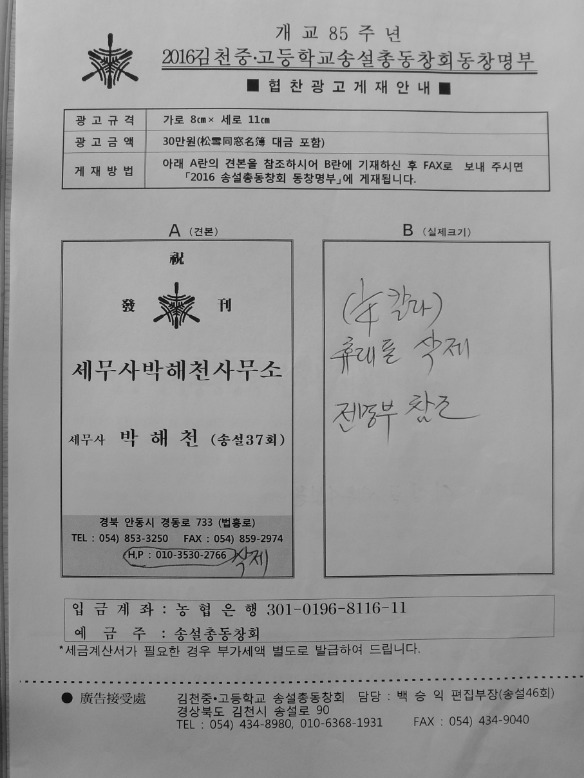 개교 85주년
2016김천중·고등학교송설총동창회동창명부
■ 협찬광고게재안내 ■
광고규격 가로 8㎝× 세로 11㎝
광고금액 30만원(松雪同窓名簿 대금 포함)
게재방법 아래 A란의 견본을 참조하시어 B란에 기재하신 후 FAX로 보내 주시면
「2016 송설총동창회 동창명부」에 게재됩니다.
A (견본)
祝
發 刊
세무사박해천사무소
세무사 박해천 (송설37회)
경북 안동시 경동로 733 (법흥로)
TEL : 054) 853-3250 FAX : 054) 859-2974
H,P : 010-3530-2766 삭제
B (실제크기)
칼라)
휴대폰 삭제
전명부 참조
입금계좌 : 농협은행 301-0196-8116-11
예금주 : 송설총동창회
*세금계산서가 필요한 경우 부가세액 별도로 발급하여 드립니다.
● 廣告接受處 김천중·고등학교 송설총동창회 담당 : 백승익 편집부장(송설46회)
경상북도 김천시 송설로 90
TEL : 054) 434-8980, 010-6368-1931 FAX : 054) 434-9040